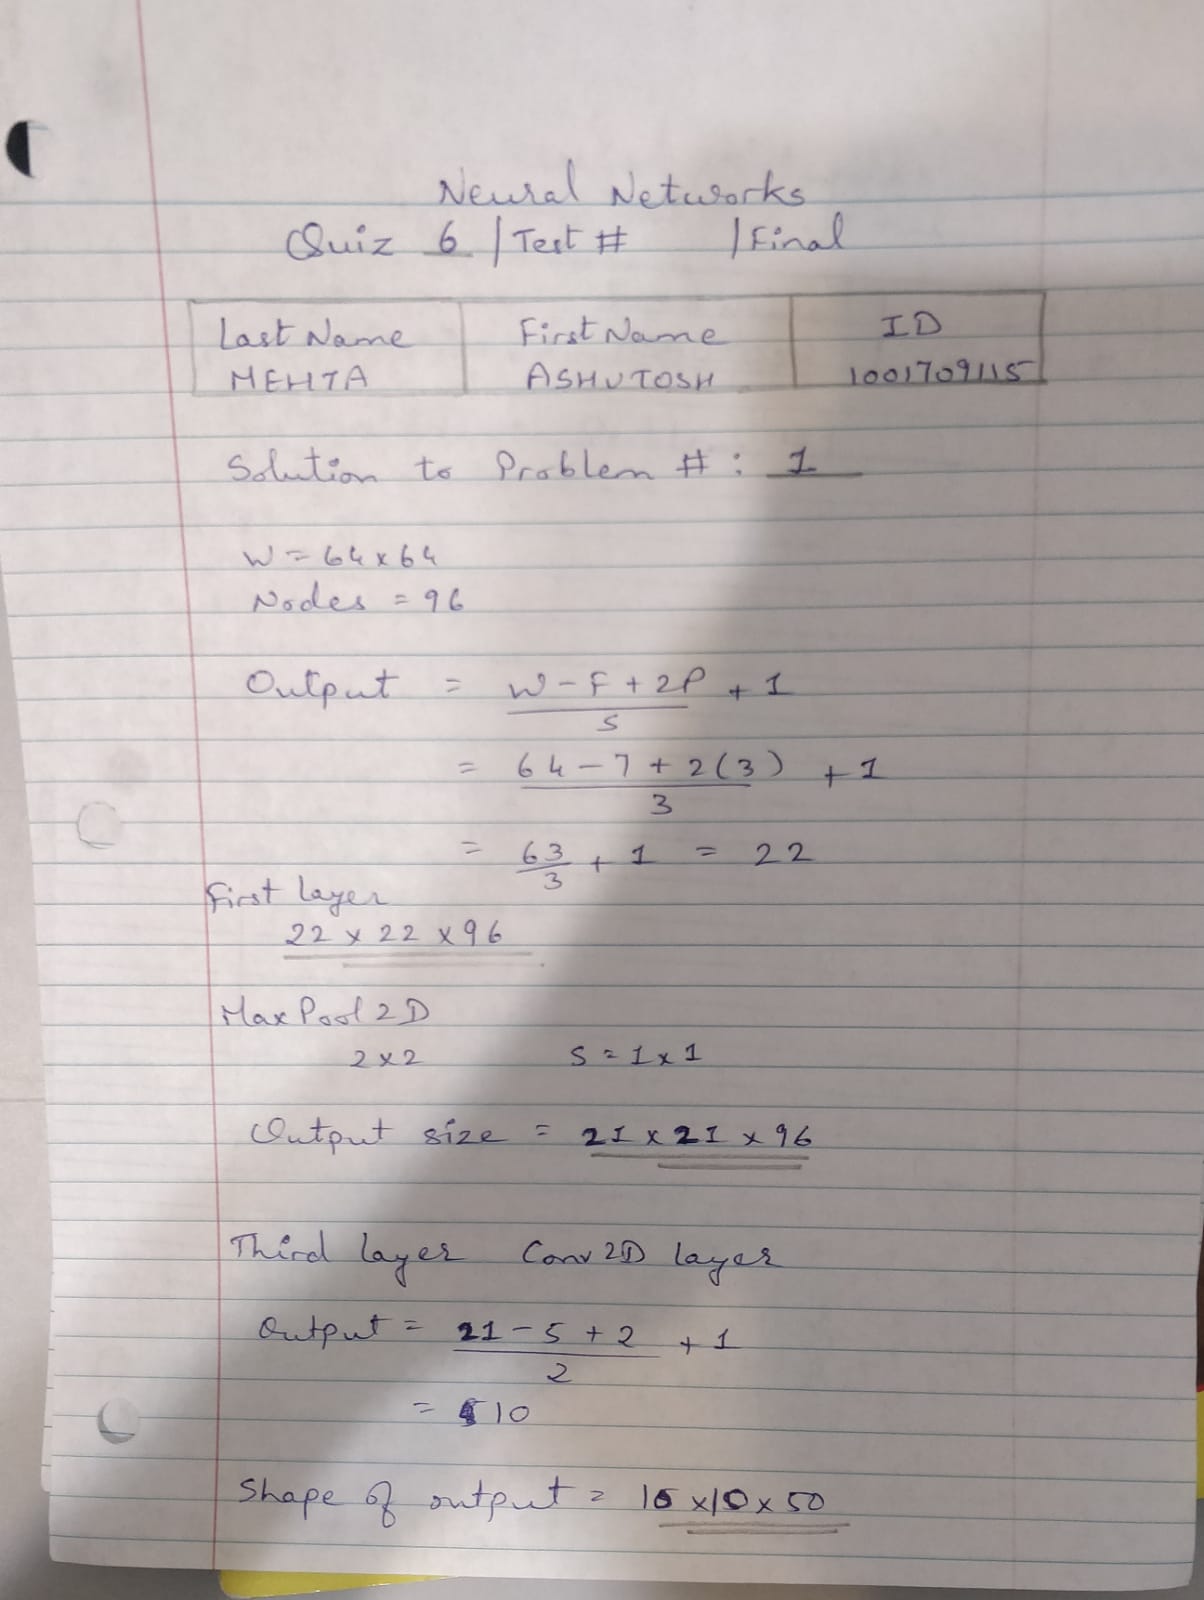 Neural Networks
Quiz 6 | Test # | Final
Last Name First Name ID
MEHTA ASHUTOSH 1001709115
Solution to Problem # : 1
W = 64 x 64
Nodes = 96
Output = W - F + 2P + 1
S
= 64 - 7 + 2(3) + 1
3
= 63 + 1 = 22
3
First layer
22 x 22 x 96
MaxPool 2D
2 x 2 S = 1 x 1
Output size = 21 x 21 x 96
Third layer Conv 2D layer
Output = 21 - 5 + 2 + 1
2
= 10
Shape of output = 10 x 10 x 50